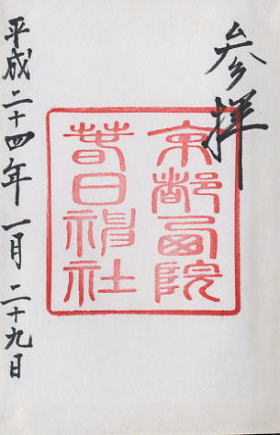 参拝
京都西院
春日神社
平成二十四年一月二十九日